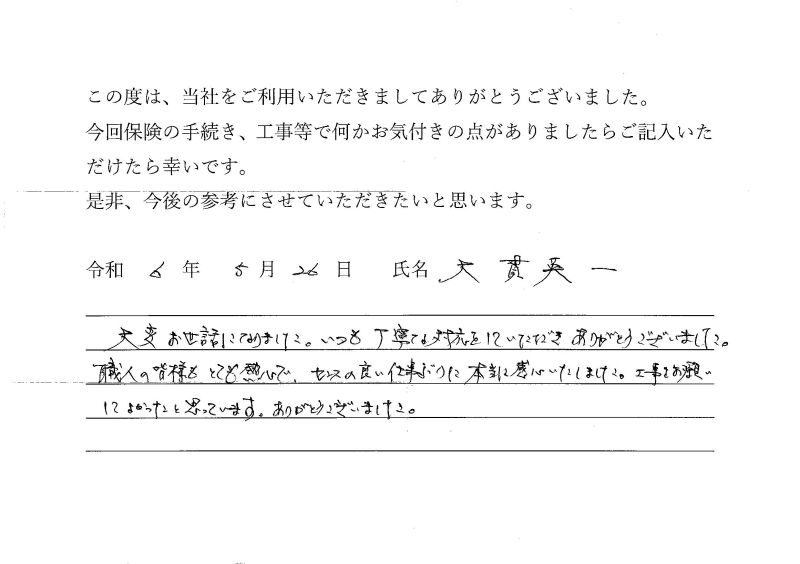 この度は、当社をご利用いただきましてありがとうございました。
今回保険の手続き、工事等で何かお気付きの点がありましたらご記入いた
だけたら幸いです。
是非、今後の参考にさせていただきたいと思います。
令和 6 年 5 月 26 日 氏名 大貫英一
大変お世話になりました。いつも丁寧な対応をしていただきありがとうございました。
職人の皆様もとても熱心で、センスの良い仕事ぶりに本当に感心いたしました。工事をお願い
してよかったと思っています。ありがとうございました。